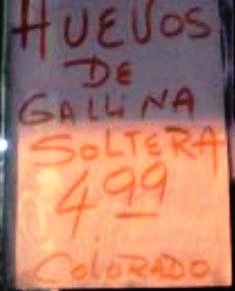 HUEVOS
DE
GALLINA
SOLTERA
4 99
COLORADO